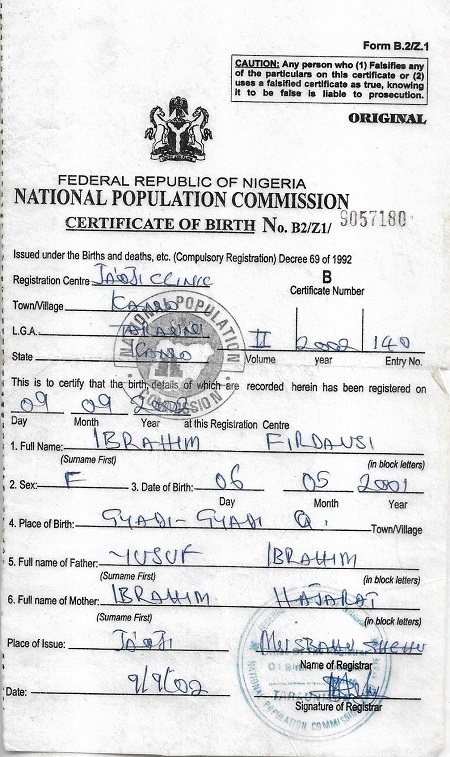 Form B.2/Z.1
CAUTION: Any person who (1) Falsifies any
of the particulars on this certificate or (2)
uses a falsified certificate as true, knowing
it to be false is liable to prosecution.
ORIGINAL
FEDERAL REPUBLIC OF NIGERIA
NATIONAL POPULATION COMMISSION
CERTIFICATE OF BIRTH No. B2/Z1/ 9057180
Issued under the Births and deaths, etc. (Compulsory Registration) Decree 69 of 1992
Registration Centre JA'OJI CLINIC B
Certificate Number
Town/Village KANO
L.G.A. TARAUNI II 2002 140
State KANO Volume year Entry No.
NATIONAL POPULATION COMMISSION
This is to certify that the birth details of which are recorded herein has been registered on
09 09 2002
Day Month Year at this Registration Centre
1. Full Name: IBRAHIM FIRDAUSI
(Surname First) (in block letters)
2. Sex: F 3. Date of Birth: 06 05 2001
Day Month Year
4. Place of Birth: GYADI-GYADI Q. Town/Village
5. Full name of Father: YUSUF IBRAHIM
(Surname First) (in block letters)
6. Full name of Mother: IBRAHIM HAJARAT
(Surname First) (in block letters)
Place of Issue: JA'OJI MUSBAHU SHEHU
Name of Registrar
Date: 9/9/002
Signature of Registrar
NATIONAL POPULATION COMMISSION